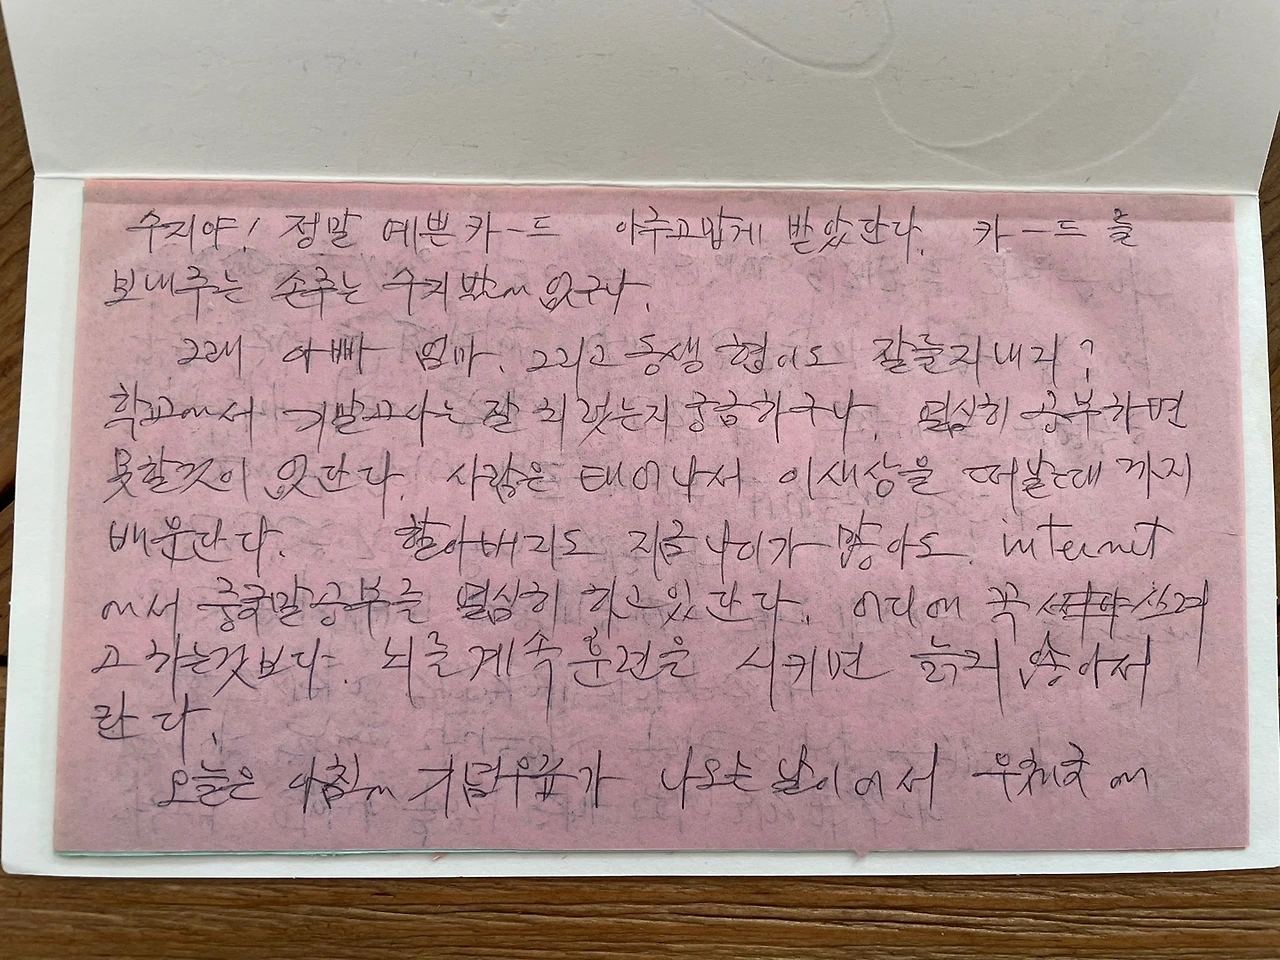 수지야! 정말 예쁜 카-드 아주고맙게 받았단다. 카-드를
보내주는 손주는 수지밖에 없구나.
그래 아빠 엄마. 그리고 동생 형이도 잘들지내지?
학교에서 기말고사는 잘 치렀는지 궁금하구나. 열심히 공부하면
못할것이 없단다. 사람은 태어나서 이세상을 떠날때 까지
배운단다. 할아버지도 지금 나이가 많아도 internet
에서 중국말공부를 열심히 하고있단다. 어디에 꼭
고 하는것보다. 뇌를 계속 훈련을 시키면 늙지 않아서
란다.
오늘은 아침에 기념우표가 나오는 날이어서 우체국에